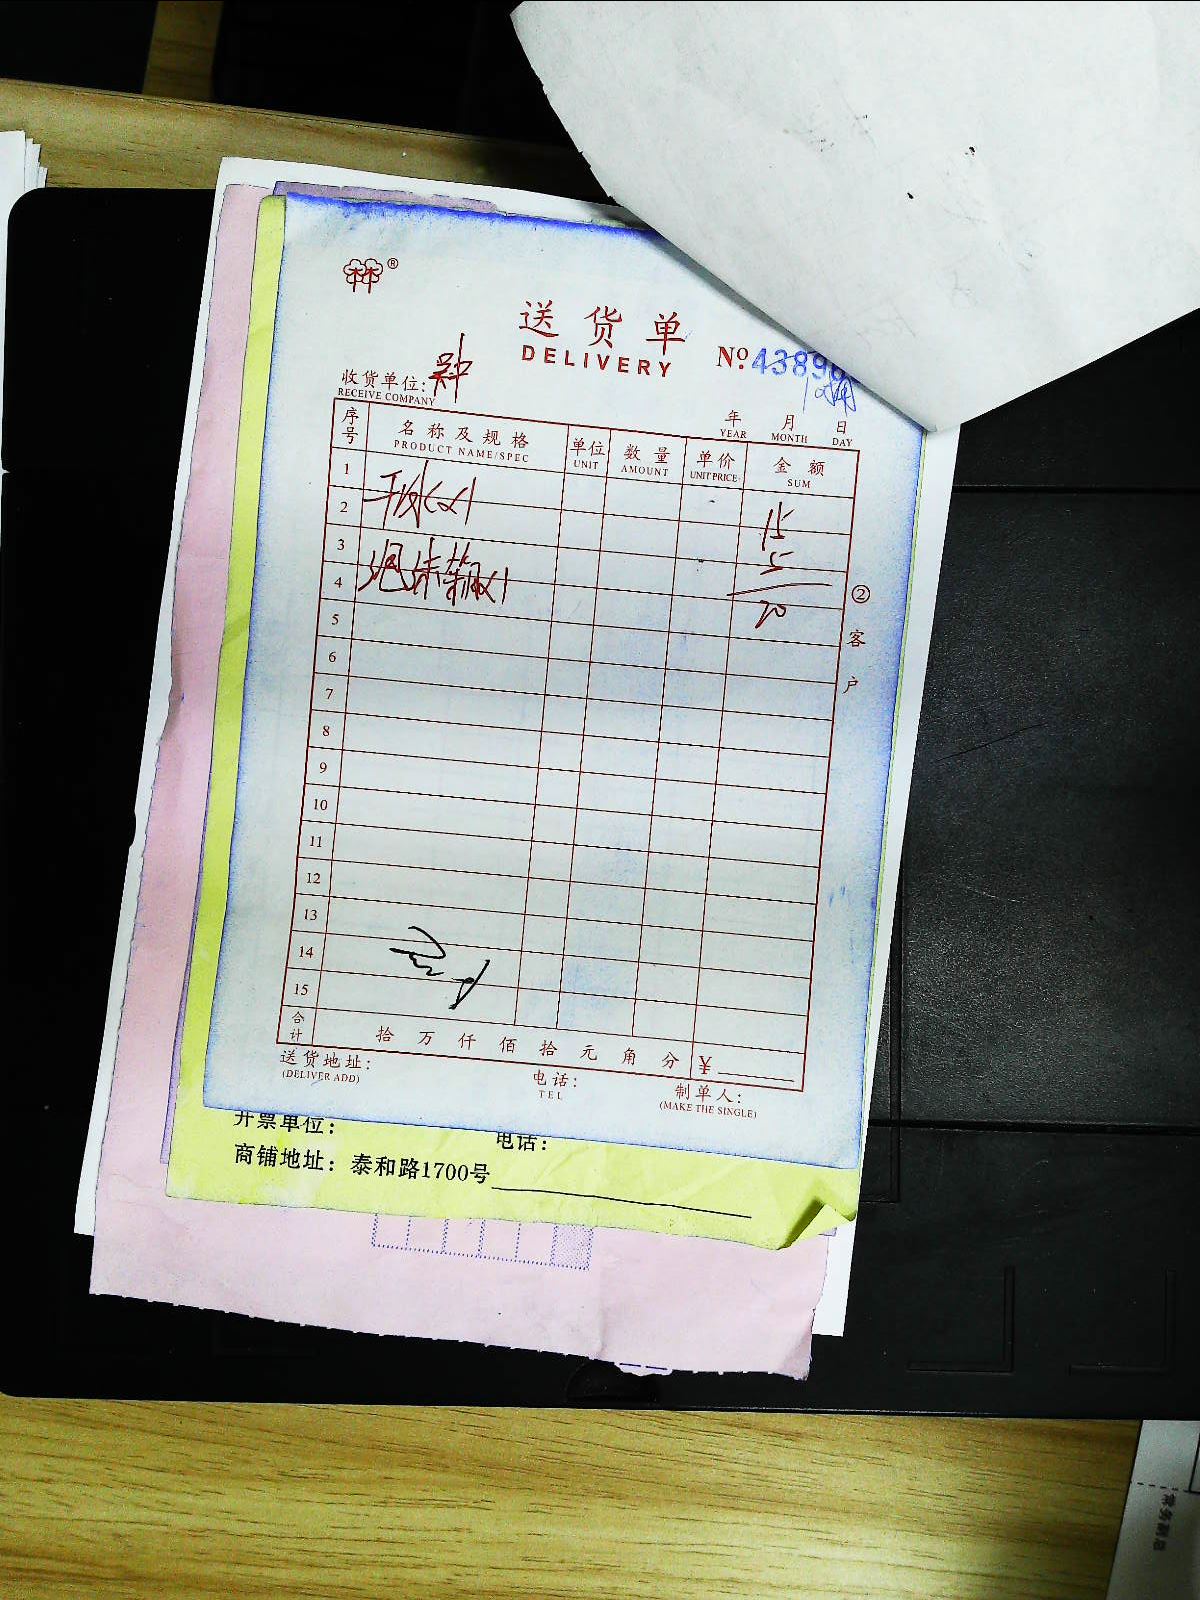 ®
送货单
DELIVERY
№ 4389
收货单位:
RECEIVE COMPANY
年 月 日
YEAR MONTH DAY
序号 名称及规格 单位 数量 单价 金额
PRODUCT NAME/SPEC UNIT AMOUNT UNIT PRICE SUM
1
2 15
3 5
4 20
5
6
7
8
9
10
11
12
13
14
15
②客户
合计 拾 万 仟 佰 拾 元 角 分 ¥
送货地址: 电话: 制单人:
(DELIVER ADD) TEL (MAKE THE SINGLE)
开票单位: 电话:
商铺地址: 泰和路1700号